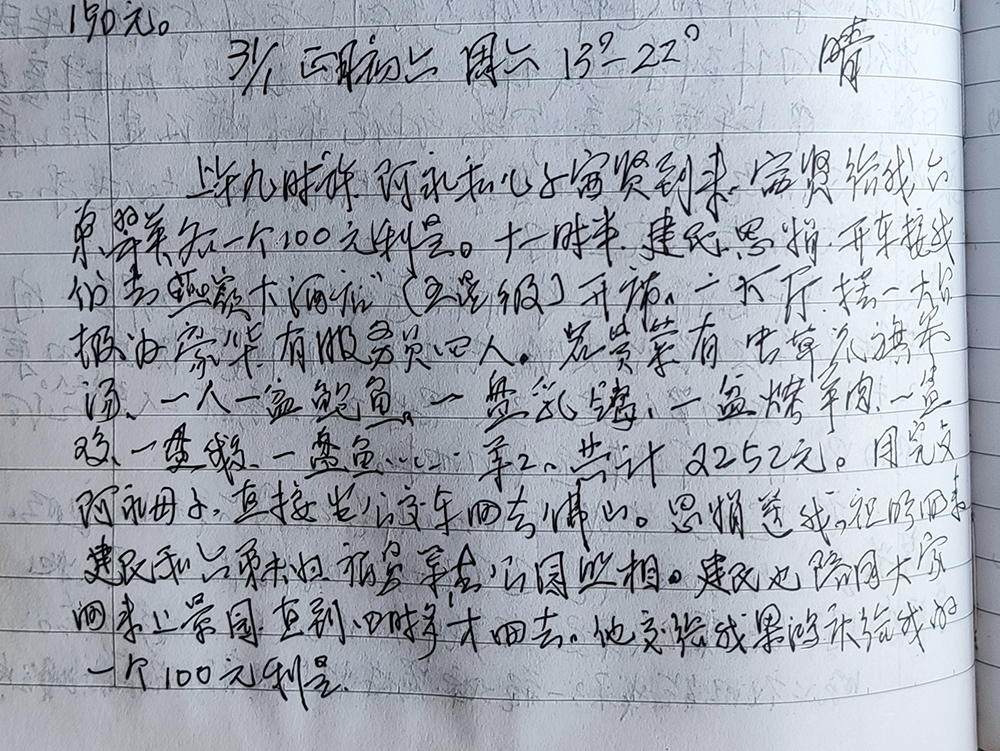 190元。
31/1 正月初六 周六 13°-22° 晴
上午九时许 阿永和儿子富贤到来、富贤给我六
弟 翠英各一个100元利是。十一时半、建民、思娟、开车接我
们去 大酒店"(五星级)开饭。二 厅 摆一大台
极为豪华 有服务员四人。名贵菜有 虫草花
汤、一人一盅鲍鱼、一盘乳鸽、一盘 羊肉、一盘
鸡、一盘 、一盘鱼…… 等等、共计 2252元。用完
阿永母子、直接坐公交车回去佛山。思娟送我 回来
建民和六弟 妇 等去公园照相。建民也陪同大家
回来上 园 直到 四时多才回去。他交给我果鸿 给我的
一个100元利是.